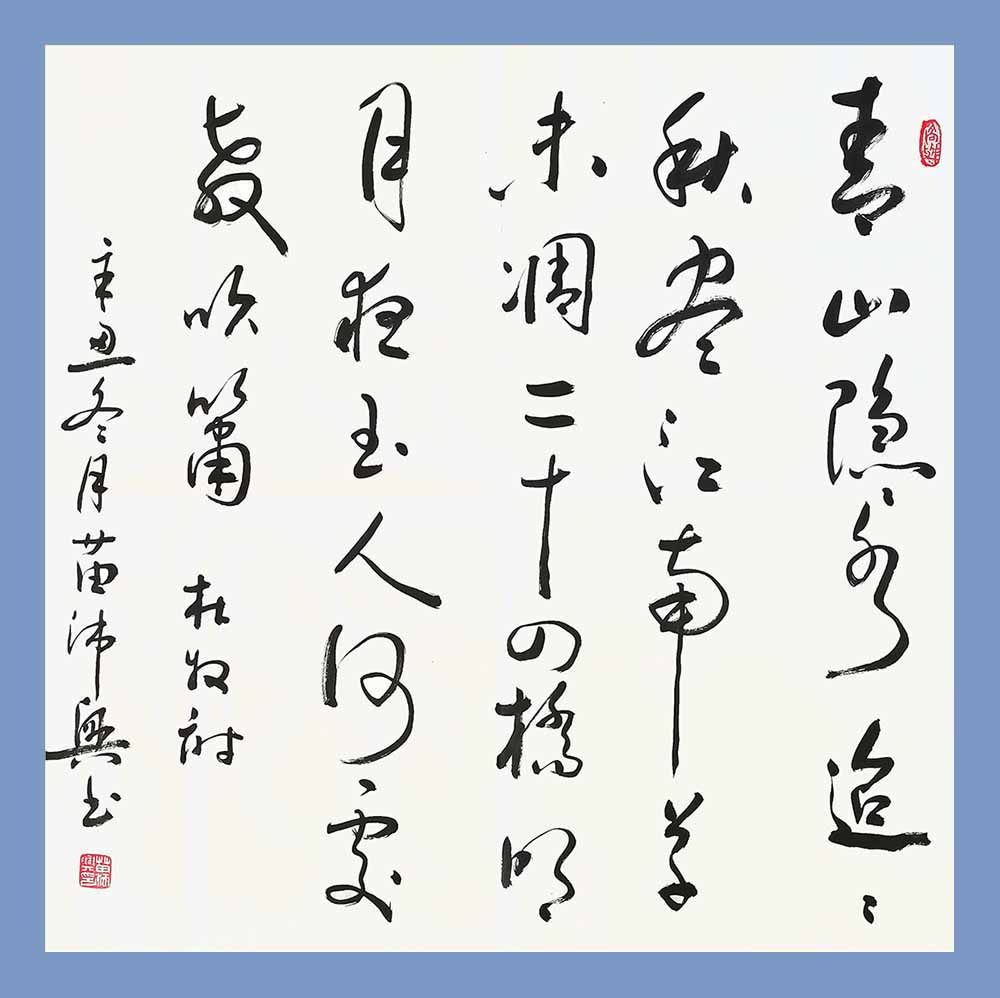 青山隐〻水迢〻
秋尽江南草
未凋二十四橋明
月夜玉人何處
教吹簫 杜牧詩
辛丑冬月苗沛興书